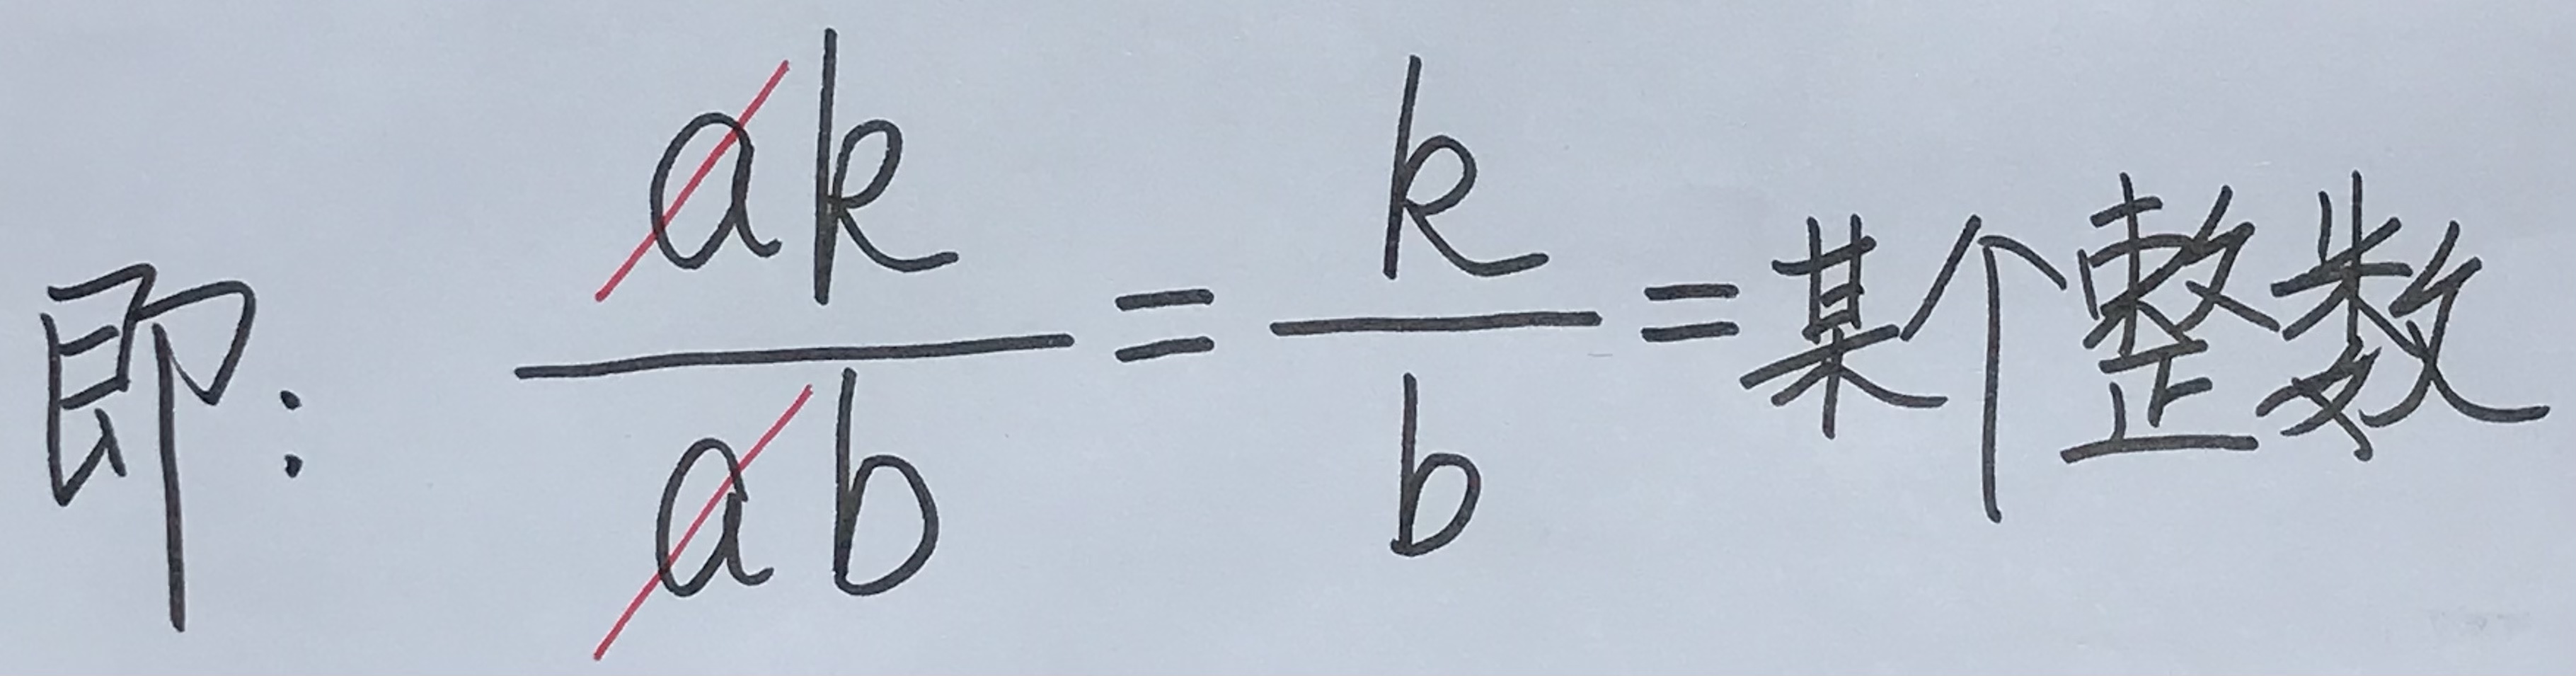 即: ak/ab = k/b = 某个整数